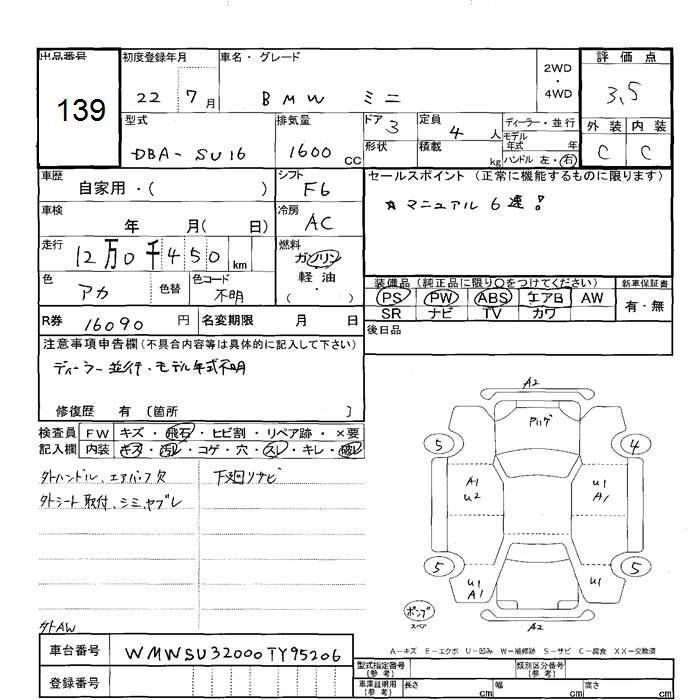 出品番号
139
初度登録年月
22 7月
車名・グレード
BMW ミニ
2WD
・
4WD
評価点
3,5
外装 内装
C C
型式
DBA-SU16
排気量
1600 CC
ドア 3
形状
定員 4 人
積載 kg
ディーラー・並行
モデル年式 年
ハンドル 左・右
車歴
自家用・( )
シフト F6
セールスポイント (正常に機能するものに限ります)
☆マニュアル6速!
車検
年 月( 日)
冷房 AC
走行
12万0千450 km
燃料
ガソリン
軽油
( ・ )
色 アカ
色替
色コード 不明
装備品(純正品に限り〇をつけてください)
PS PW ABS エアB AW
SR ナビ TV カワ
新車保証書
有・無
R券 16090 円
名変期限 月 日
後日品
注意事項申告欄(不具合内容等は具体的に記入して下さい)
ディーラー並行、モデル年式不明
修復歴 有 〔箇所 〕
検査員記入欄
FW キズ・飛石・ヒビ割・リペア跡・×要
内装 キズ・汚れ・コゲ・穴・スレ・キレ・破レ
外ハンドル、エアバッグ欠
下廻リサビ
外シート取付、シミ、ヤブレ
外AW
A2
5
4
A1
U2
U1
A1
5
5
U1
A1
U1
A2
スペア
A－キズ E－エクボ U－凹み W－補修跡 S－サビ C－腐食 XX－交換済
車台番号 WMWSU32000TY95206
登録番号
型式指定番号(参考)
類別区分番号(参考)
車庫証明用(参考) 長さ cm 幅 cm 高さ cm